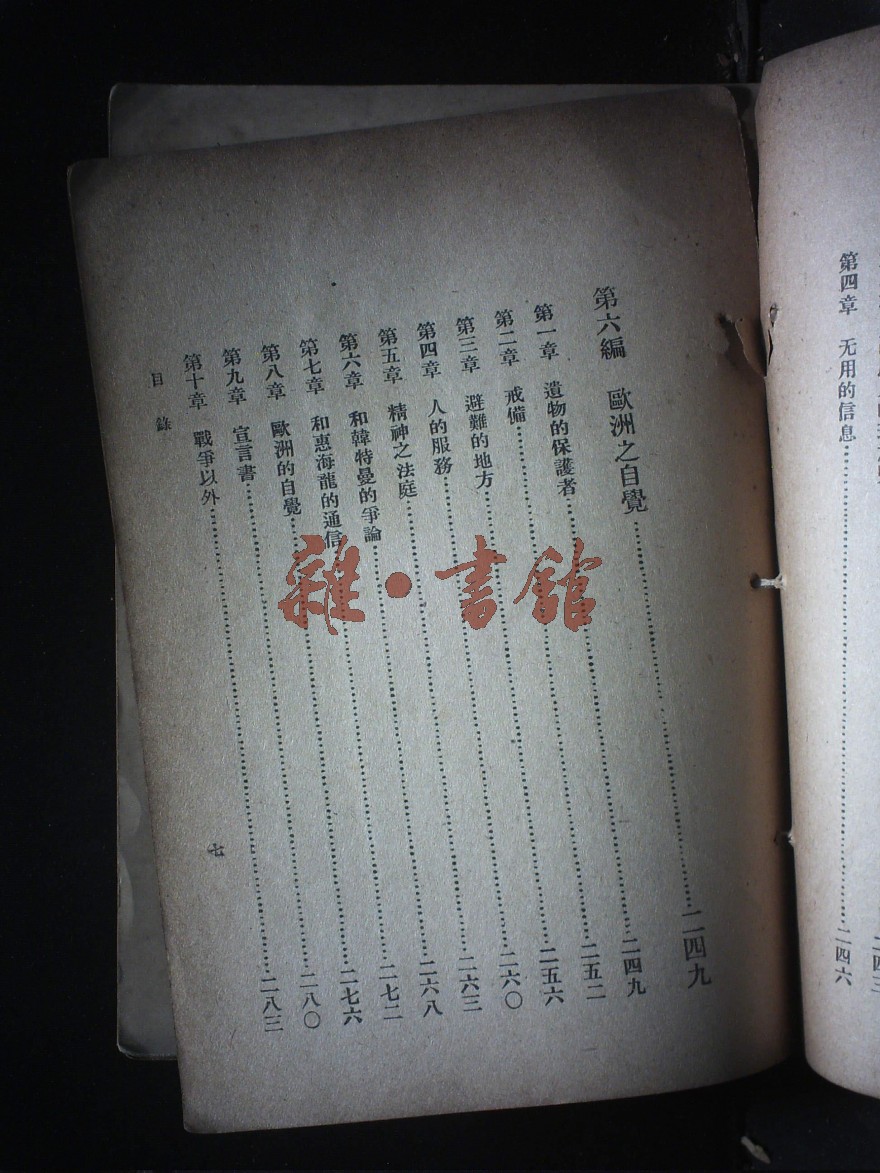 第四章 无用的信息……二四六
第六編 歐洲之自覺……二四九
第一章 遺物的保護者……二四九
第二章 戒備……二五二
第三章 避難的地方……二五六
第四章 人的服務……二六〇
第五章 精神之法庭……二六三
第六章 和韓特曼的爭論……二六八
第七章 和惠海龍的通信……二七二
第八章 歐洲的自覺……二七六
第九章 宣言書……二八〇
第十章 戰爭以外……二八三
目錄 七
雜·書館